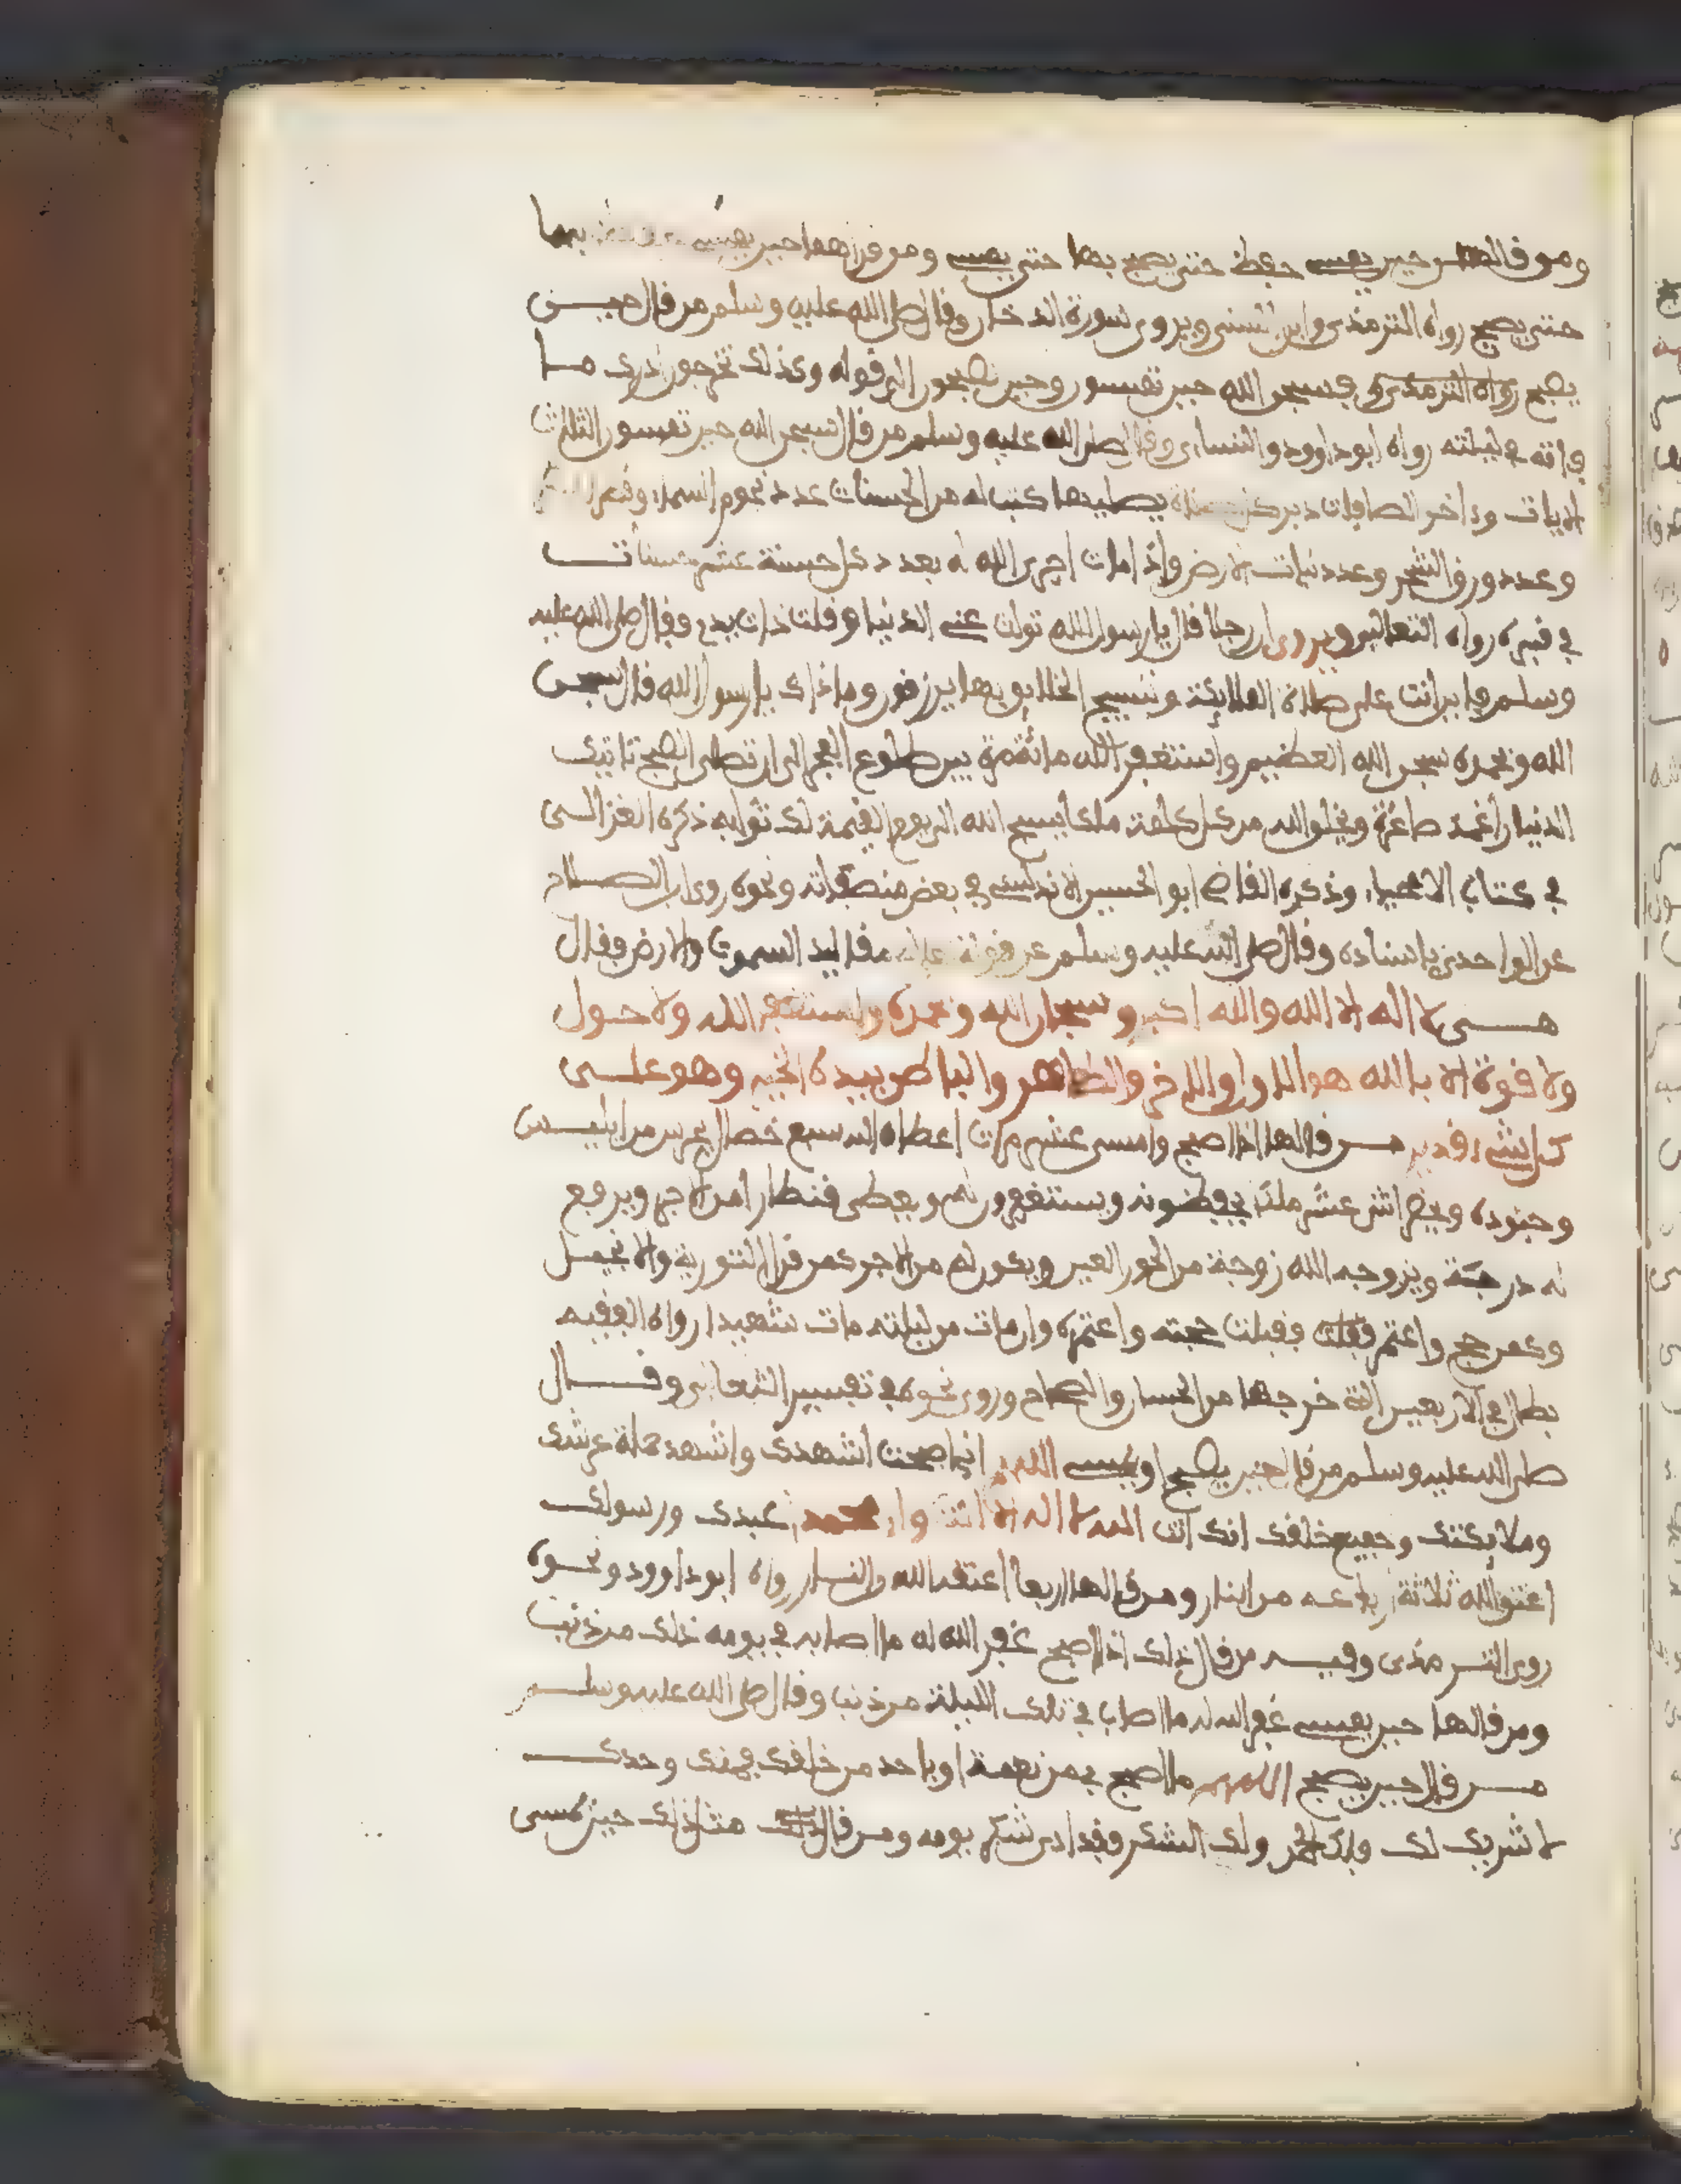 ومن قالها حين يمسي حفظ حتى يصبح بها حتى يمسي ومن قراهما حين يمسي بهما
حتى يصبح رواه الترمذي وابن السني ويروى سورة الدخان وقال صلى الله عليه وسلم من قال حيـن
يصبح رواه الترمذي فسبحن الله حين تمسون وحين تصبحون الى قوله وكذلك تخرجون ادرك مـا
فاته في ليلته رواه ابو داوود والنساي وقال صلى الله عليه وسلم من قال سبحن الله حين تمسون الثلاث
الايات وءاخر الصافات دبر كل صلاة يصليها كتب له من الحسنات عدد نجوم السماء وقطر
وعدد ورق الشجر وعدد نبات الارض واذا مات اجرى الله له بعدد كل حسنة عشر حسنات
في قبره رواه الثعالبي ويروى ان رجلا قال يا رسول الله تولت عني الدنيا وقلت ذات يدي فقال صلى الله عليه
وسلم فاين انت على صلاة الملائكة وتسبيح الخلايق وبها يرزقون وماذاك يا رسول الله قال سبحـن
الله وبحمده سبحن الله العظيم واستغفر الله مائة مرة بين طلوع الفجر الى ان تصلى الصبح تاتيك
الدنيا راغمة صاغرة ويخلق الله من كل كلمة ملكا يسبح الله الى يوم القيمة لك ثوابه ذكره الغزالـي
في كتاب الاحياء وذكره القاضي ابو الحسين الاندلسي في بعض مصنفاته ونحوه روى ابن الصـلاح
عن الواحدي باسناده وقال صلى الله عليه وسلم عن قوله مقاليد السموت والارض فقال
هـي لا اله الا الله والله اكبر وسبحان الله وبحمده واستغفر الله ولا حـول
ولا قوة الا بالله هو الاول والاخر والظاهر والباطن بيده الخير وهو علـى
كل شيء قدير مـن قالها اذا اصبح وامسى عشر مرات اعطاه الله سبع خصال يحرس من ابليـس
وجنوده ويحضر اثنى عشر ملكا يحفظونه ويستغفرون له ويعطى قنطارا من الاجر ويرفع
له درجة ويزوجه الله زوجة من الحور العين ويكون له من الاجر كمن قرا التورية والانجيـل
وكمن حج واعتمر فقبلت حجته واعتمره وان مات من ليلته مات شهيدا رواه الفقيه
بطال في الاربعين التي خرجها من الحسان والصحاح وروى نحوه في تفسير الثعالبي وقـال
صلى الله عليه وسلم من قال حين يصبح او يمسي اللهم اني اصبحت اشهدك واشهد حملة عرشك
وملايكتك وجميع خلقك انك انت الله لا اله الا انت وان محمدا عبدك ورسولك
اعتق الله ثلاثة ارباعه من النار ومن قالها اربعا اعتقه الله من النار رواه ابو داوود ونحـوه
روى التـرمذي وفيـه من قال ذلك اذا اصبح غفر الله له ما اصابه في يومه ذلك من ذنب
ومن قالها حين يمسي غفر الله له ما اصاب في تلك الليلة من ذنب وقال صلى الله عليه وسلـم
مـن قال حين يصبح اللهم ما اصبح بي من نعمة او باحد من خلقك فمنك وحدك
لا شريك لك ولك الحمد ولك الشكر فقد ادى شكر يومه ومن قال مثل ذلك حين يمسي